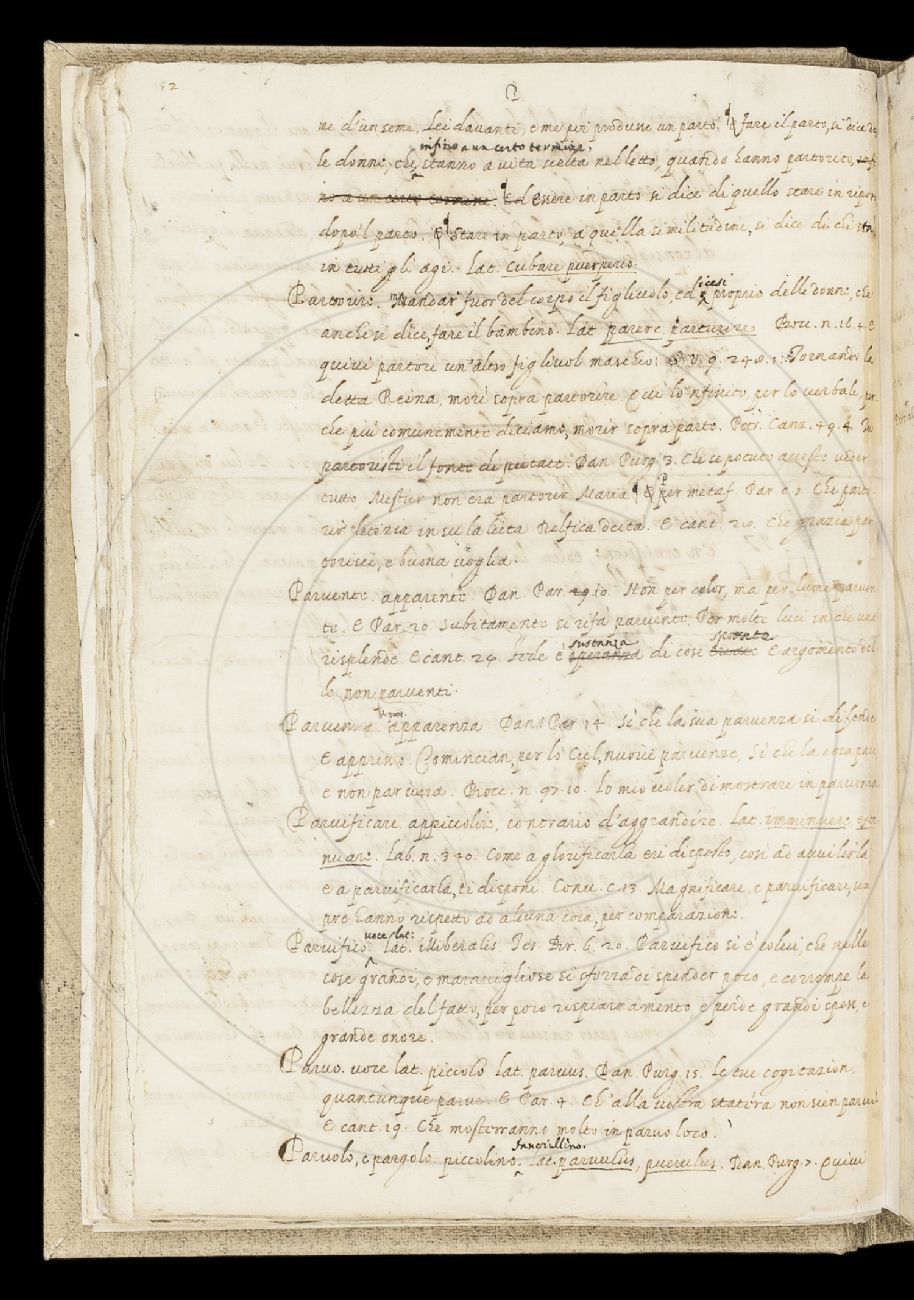 52
P
me d'un seme. Lei davanti, e me poi produsse un parto. ¶ E fare il parto, si dice de
infino a un certo termine,
le donne, che stanno a vita scelta nel letto, quando hanno partorito, infi
no a un certo termine. ¶ Ed essere in parto si dice di quello stare in riposo
dopo 'l parto. ¶ E stare in parto, a quella similitudine, si dice di chi sta
in tutti gli agi. Lat. Cubare puerperio.
dicesi
Partorire. Mandar fuor del corpo il figliuolo, ed è proprio delle donne, che
anche si dice, fare il bambino. Lat. parere, parturire. Bocc. n. 16. 4. E
quivi partorì un'altro figliuol maschio. G. V. 9. 248. 1. Tornando la
detta Reina, morì sopra partorire. Qui lo 'nfinito, per lo verbale, per
che più comunemente diciamo, morir sopra parto. Petr. Canz. 49. 4. Tu
partoristi il fonte di pietate. Dan. Purg. 3. Che se potuto aveste veder
tutto Mestier non era partorir Maria. ¶ E per metaf. Par. c. 1. Che parto-
rir letizia in su la lieta Delfica deità. E cant. 20. Che grazia par
torisce, e buona voglia.
Parvente. apparente. Dan. Par. 10. Non per color, ma per lume parven
te. E Par. 20. Subitamente si rifà parvente Per molte luci in che una
sustanza sperate
risplende. E cant. 24. Fede è speranza di cose E argomento del
le non parventi.
Parvenza. apparenza. Dan. Par. 14. Sì che la sua parvenza si difende
E appresso. Comincian, per lo Ciel, nuove parvenze, Sì che la cosa par
e non par vera. Bocc. n. 97. 10. Lo mio voler dimostrare in parvenza
Parvificare. appiccolire, contrario d'aggrandire. Lat. imminuere, exte
nuare. Lab. n. 340. Come a glorificarla eri disposto, così ad avvilirla,
e a parvificarla, ti disponi. Conv. c. 13 Magnificare, e parvificare, sem
pre hanno rispetto ad alcuna cosa, per comparazione.
voce lat.
Parvifico. Lat. illiberalis. Tes. Br. 6. 20. Parvifico si è colui, che nelle
cose grandi, e maravigliose si sforza di spender poco, e corrompe la
bellezza del fatto, per poco risparmiamento e perde grandi spese, e
grande onore.
Parvo. voce lat. piccolo. Lat. parvus. Dan. Purg. 15. Le tue cogitazion,
quantunque parve. E Par. 4. Ch'alla vostra statera non sien parvi
E cant. 19. Che mosterranno molto in parvo loco.
fanciullino.
Parvolo, e pargolo. piccolino. Lat. parvulus, puerulus. Dan. Purg. 7. Quivi